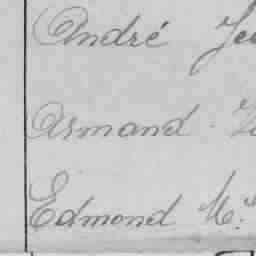 André
Armand
Edmond M.